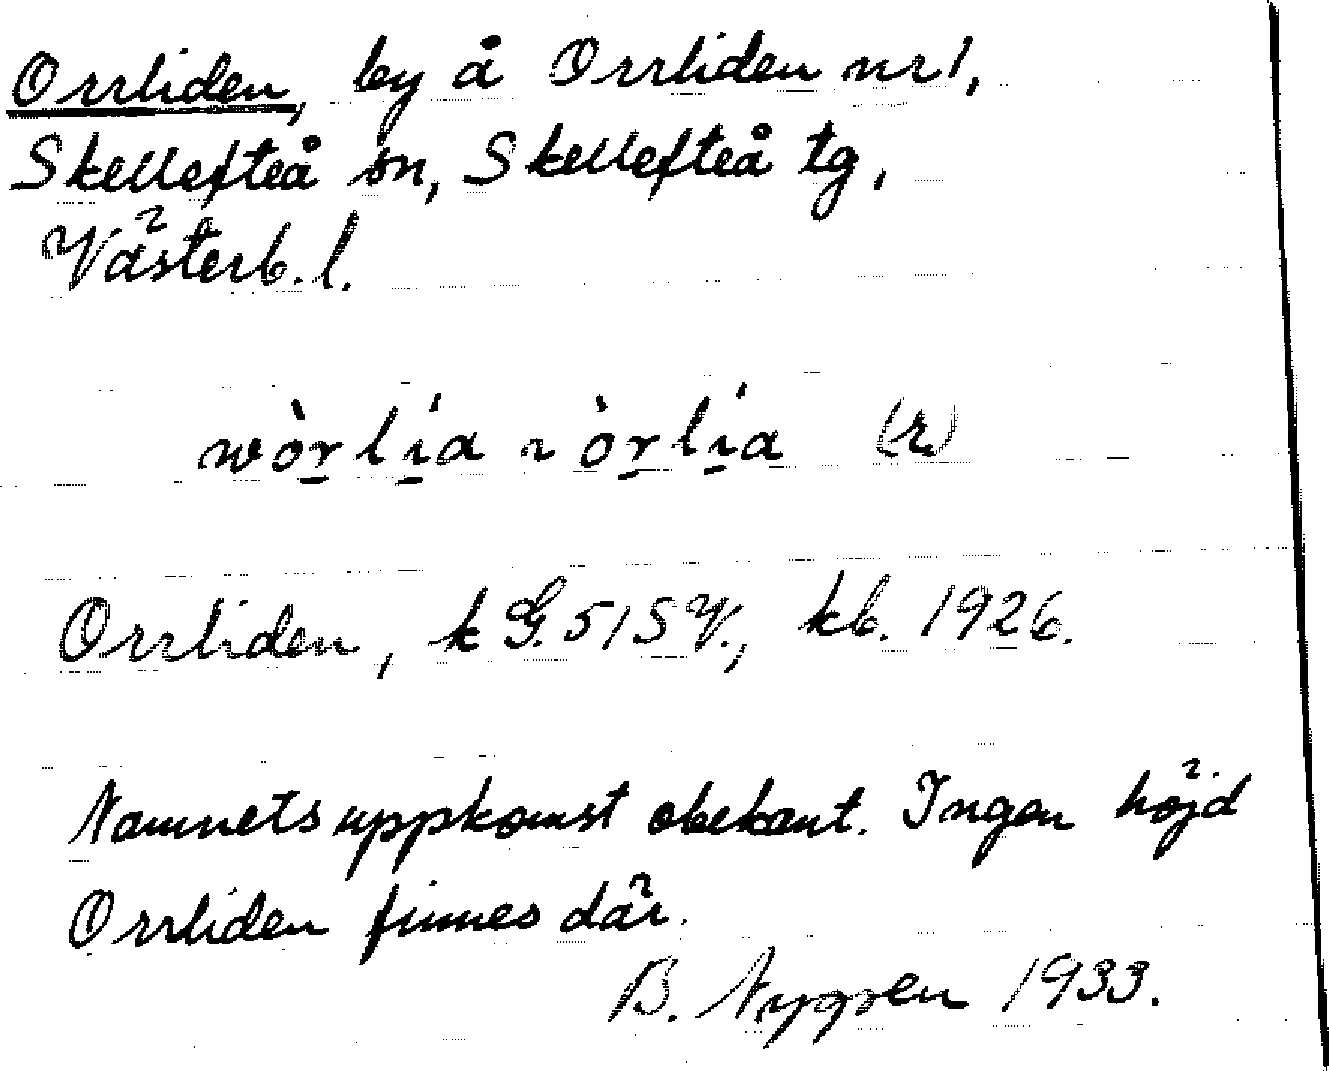 Orrliden, by å Orrliden nr 1,
Skellefteå sn, Skellefteå tg,
Västerb. l.
wòr̲lí̲a ~ òr̲lí̲a (r)
Orrliden, k G. 51 S V., kb. 1926.
Namnets uppkomst obekant. Ingen höjd
Orrliden finnes där.
B. Nygren 1933.